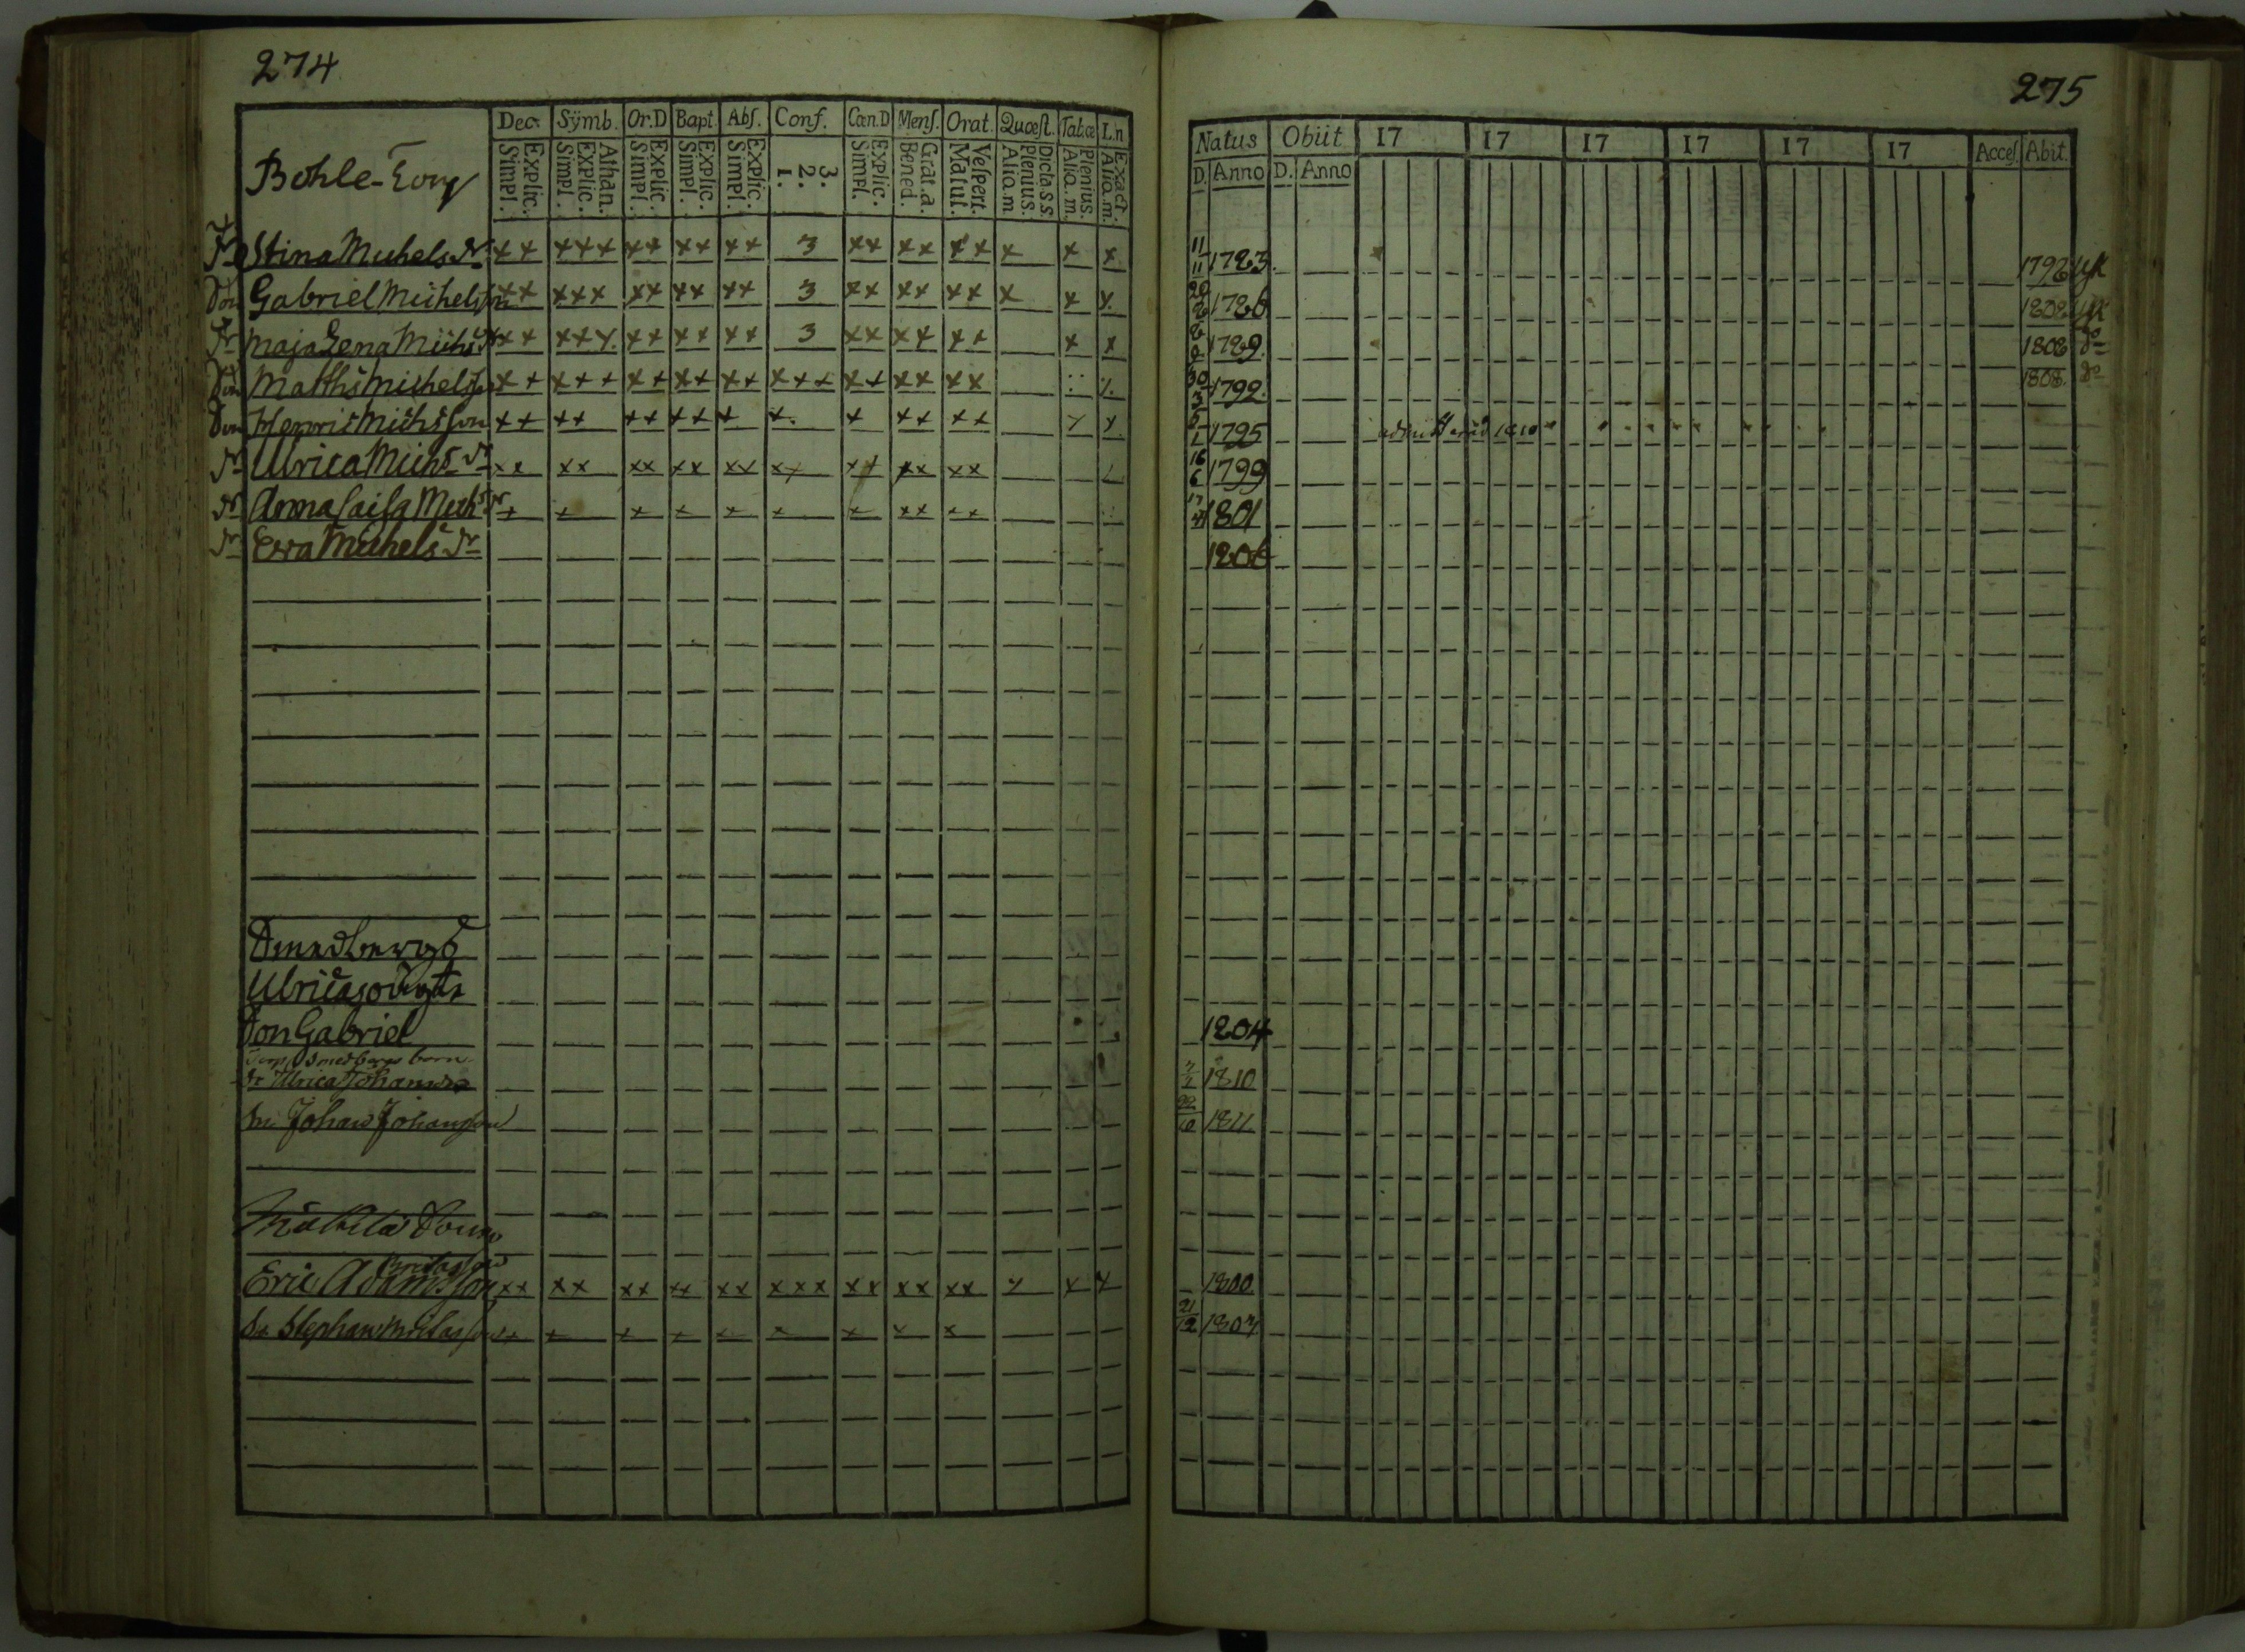 274
Dec. Sÿmb. Or.D Bapt. Abs. Conf. Cœn.D Mens. Orat. Quæst. Tab.œ I.n
Explic. Simpl. Athan. Explic. Simpl. Explic. Simpl. Explic. Simpl. Explic. Simpl. 3. 2. 1. Explic. Simpl. Grat.a. Bened. Vespert. Matut. Dicta S S. Plenius. Aliq.m Plenius. Aliq.m. Exact. Aliq.m.
Bohle-Torp
Dr Stina Michels dr xx xxx xx xx xx 3 xx xx xx x x x
Son Gabriel Michelsson xx xxx xx xx xx 3 xx xx xx x x x
Dr Maja Lena Michs dr xx xxx xx xx xx 3 xx xx xx x x
Son Matths Michelsson xx xxx xx xx xx xxx xx xx xx
Son Henric Michsson xx xx xx xx x x x xx xx x x
Dr Ulrica Michs dr xx xx xx xx xx xx xx xx xx
Dr Anna Caisa Mich dr x x x x x x x xx xx
Dr Eva Michels dr
Smedbergs
Ulrica
Son Gabriel
Smedbergs barn
dr Ulrica Johansdr
Son Johan Johansson
Eric Adamsson xx xx xx xx xx xxx xx xx xx x x x
Stephan x x x x x x x x
275
Natus Obiit 17 17 17 17 17 17 Acces. Abit.
D. Anno D. Anno
11/11 1783 1798
20/8 1786 1808
8/9 1789 1808 do
30/3 1792 1808 do
1795 1810
16/6 1799
1801
1806
1804
7/1 1810
22/10 1811
1800
21/12 1807